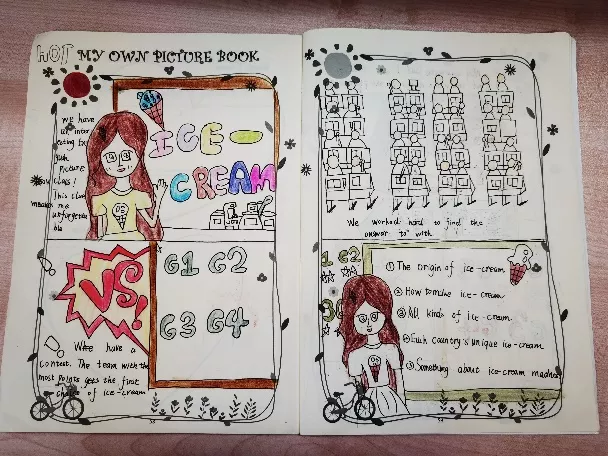 HOT MY OWN PICTURE BOOK
We have
an inter
eating
Picture
Class!
This class
me
unforgetta
ble
ICE-
CREAM
VS!
G1 G2
G3 G4
We have a
contest. The team with the
most points gets the first
of ice-cream
We worked hard to find the
answer to with
1 G2
① The origin of ice-cream
② How to make ice-cream
③ All kinds of ice-cream
④ Each country's unique ice-cream
⑤ Something about ice-cream madness